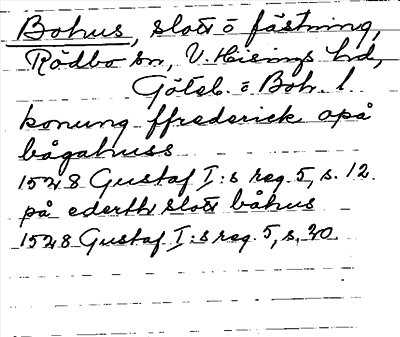 Bohus, slott o fästning,
Rödbo sn, V. Hisings hd,
Göteb. o Boh. l.
konung ffrederick opå
bågahuss
1528 Gustaf I:s reg. 5, s. 12.
på ederth slott båhus
1528 Gustaf I:s reg. 5, s. 20.